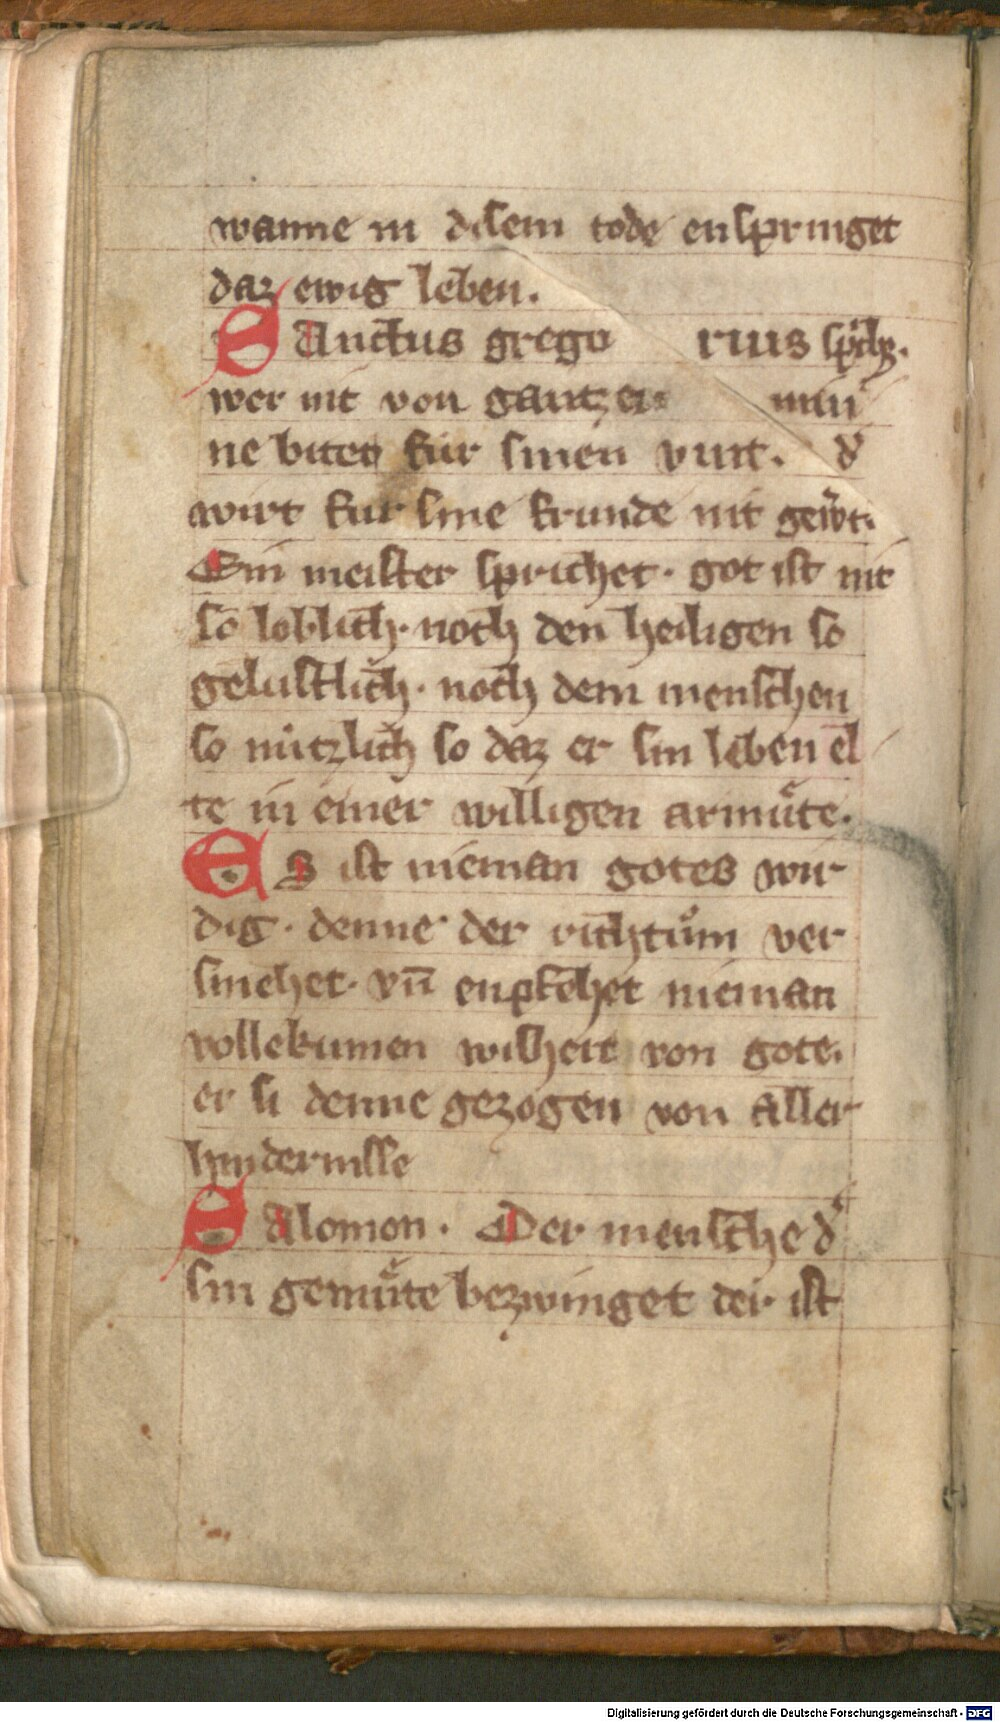 wanne in disem tode enspringet
daz ewig leben.
SAnctus grego rius sp̾chz.
wer nit von gantzer min
ne bitet für sinen vint. d̾
wirt für sine frunde nit gew̾t.
Ein meister sprichet. got ist nit
so loblich. noch den heiligen so
gelustlich. noch dem menschen
so nützlich so daz er sin leben el
te in einer willigen armuͤte.
ES ist nieman gotes wir
dig. denne der richtuͦm ver
smehet. vn̄ enpfehet nieman
vollekumen wisheit von gote.
er si denne gezogen von aller
hindernisse
Salomon. Der mensche d̾
sin gemuͤte bezwinget der ist
Digitalisierung gefördert durch die Deutsche Forschungsgemeinschaft - DFG